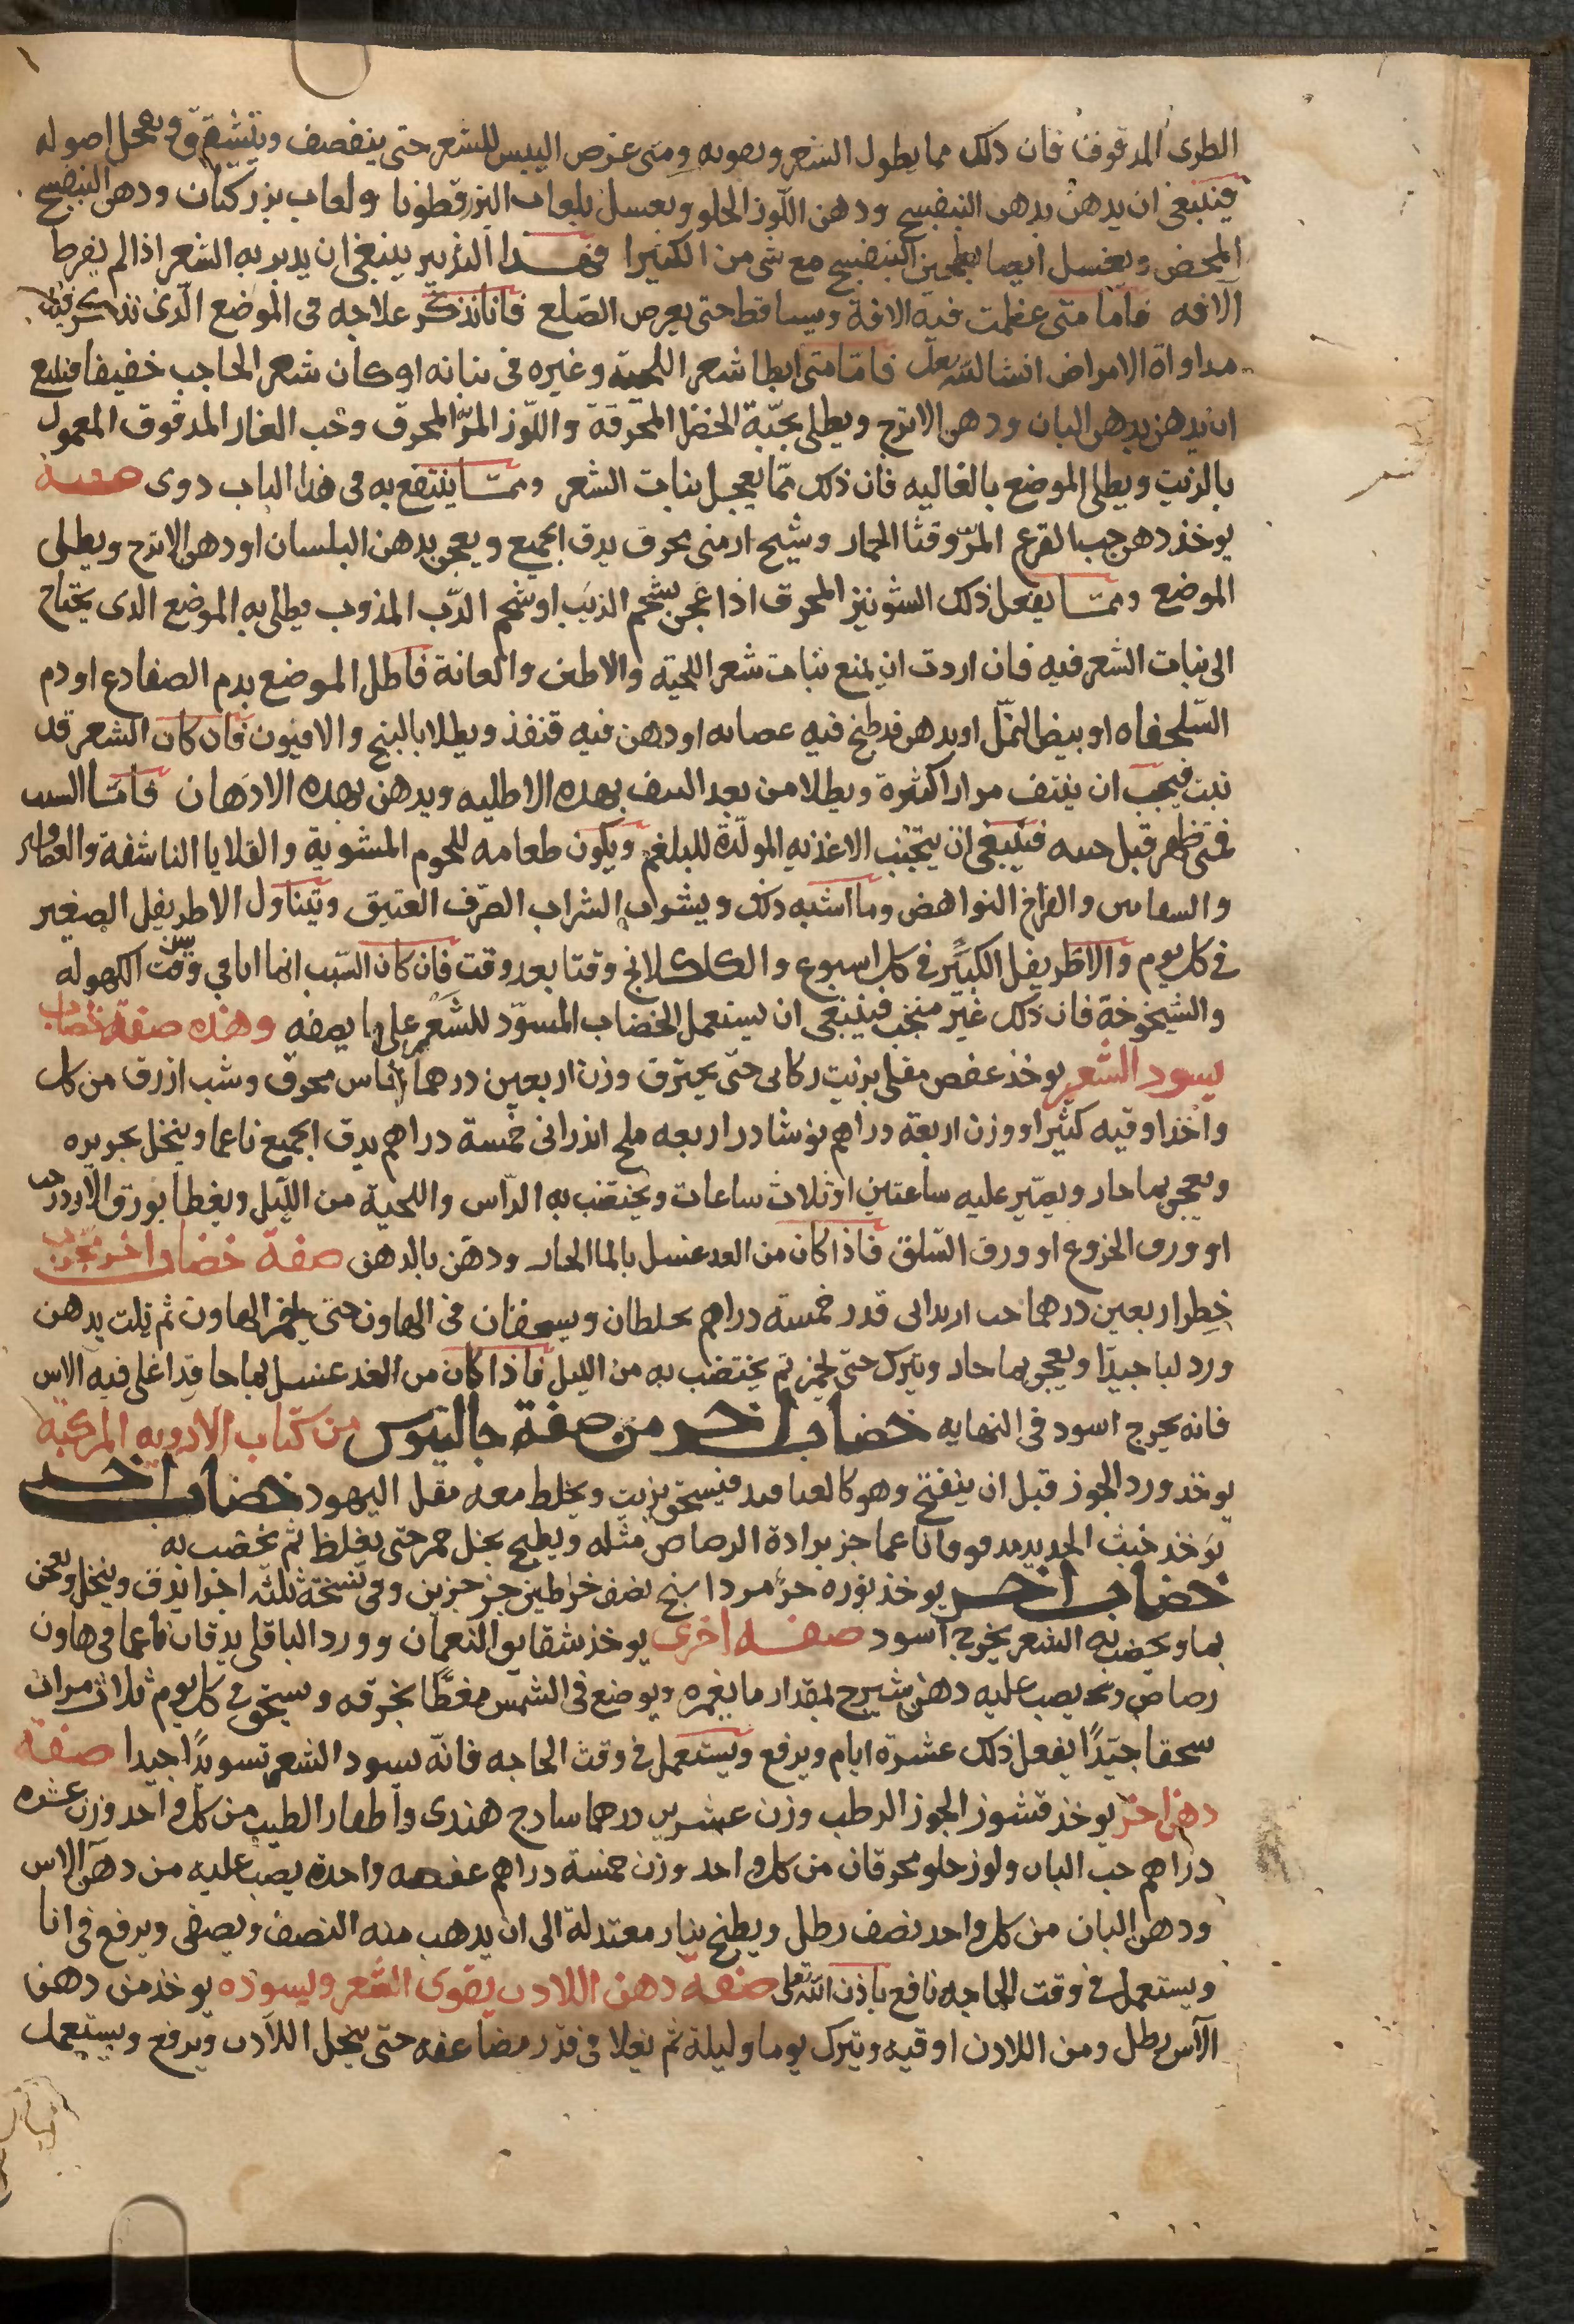 الطرى المدقوف فان ذلك مما يطول الشعر ويقويه ومتى عرض اليبس للشعر حتى ينقصف ويتشقق وينحل اصوله
فينبغى ان يدهن بدهن البنفسج ودهن اللوز الحلو ويغسل بلعاب البزر قطونا ولعاب بزر كتان ودهن البنفسج
المحض ويغسل ايضا بطحين البنفسج مع شى من الكثيرا فهذا التدبير ينبغى ان يدبر به الشعر اذا لم يفرط
الافه فاما متى عظمت فيه الافة ويساقط حتى يعرض الصلع فانا نذكر علاجه فى الموضع الذى نذكر فيه
مداواة الامراض انشا الله تعالى فاما متى ابطا شعر اللحية وغيره فى نباته او كان شعر الحاجب خفيفا فينبغى
ان يدهن بدهن البان ودهن الاترج ويطلى بحبة الخضرا المحرقة واللوز المر المحرق وحب الغار المدقوق المعمول
بالزيت ويطلى الموضع بالغاليه فان ذلك مما يعجل بنبات الشعر ومما ينتفع به فى هذا الباب دوى صفته
يوخذ دهن حب القرع المر وقثا الحمار وشيح ارمنى محرق يدق الجميع ويعجن بدهن البلسان او دهن الاترج ويطلى
الموضع ومما يفعل ذلك الشونيز المحرق اذا عجن بشحم الذيب او شحم الدب المذوب ويطلى به الموضع الذى يحتاج
الى نبات الشعر فيه فان اردت ان يمنع نبات شعر اللحية والابطين والعانة فاطل الموضع بدم الضفادع او دم
السلحفاه او بيض النمل او بدهن قد طبخ فيه عصابه او دهن فيه قنفذ ويطلا بالبنج والافيون فان كان الشعر قد
نبت فيجب ان ينتف مرارا كثيرة ويطلا من بعد النتف بهذه الاطليه ويدهن بهذه الادهان فاما السبب
فمتى ظهر قبل حينه فينبغى ان يتجنب الاغذيه المولدة للبلغم ويكون طعامه للحوم المشوية والقلايا الناشفة
والفراخ النواهض وما اشبه ذلك ويشرب الشراب الصرف العتيق ويتناول الاطريفل الصغير
فى كل يوم والاطريفل الكبير فى كل اسبوع والكلكلانج وقتا بعد وقت فان كان السبب انما اتا فى وقت سن الكهوله
والشيخوخة فان ذلك غير منجب فينبغى ان يستعمل الخضاب المسود للشعر على ما يصفه وهذه صفة خضاب
يسود الشعر يوخذ عفص مقلى بزيت ركابى حتى يحترق وزن اربعين درهما نحاس محرق وشب ازرق من كل
واحد اوقيه كثيرا ووزن اربعة دراهم نوشادر اربعه ملح اندرانى خمسة دراهم يدق الجميع ناعما وينخل بحريره
ويعجن بما حار ويصير عليه ساعتين او ثلاث ساعات ويختضب به الراس واللحية من الليل ويغطا بورق
او ورق الخروع او ورق السلق فاذا كان من الغد غسل بالما الحار ودهن بالدهن صفة خضاب اخر مجرب
خطر اربعين درهما حب قدر خمسة دراهم يخلطان ويسحقان فى الهاون حتى يلهاون ثم تلت بدهن
ورد لتا جيدا ويعجن بما حار ويترك حتى يخمر ثم يختضب به من الليل فاذا كان من الغد غسل بما حار قد اغلى فيه الاس
فانه يخرج اسود فى النهايه خضاب اخر من صفة جالينوس من كتاب الادويه المركبة
يوخذ ورد الجوز قبل ان ينفتح وهو كالعناقيد فيسحق بزيت ويخلط معه مقل اليهود خضاب اخر
يوخذ خبث الحديد مدقوقا ناعما جز برادة الرصاص مثله ويطبخ بخل خمر حتى يغلظ ثم يخضب به
خضاب اخر يوخذ نوره جز مرداسنج نصف خراطين جز جزين وفى نسخة ثلثه اجزا يدق وينخل ويعجن
بما ويخضب به الشعر يخرج اسود صفه اخرى يوخذ شقايق النعمان وورد الباقلى يدقان ناعما فى هاون
رصاص ويصب عليه دهن شيرج بمقدار ما يغمره ويوضع فى الشمس مغطا بخرقه ويسحق فى كل يوم ثلاث مرات
سحقا جيدا يفعل ذلك عشرة ايام ويرفع ويستعمل فى وقت الحاجه فانه يسود الشعر تسويدا جيدا صفة
دهن اخر يوخذ قشور الجوز الرطب وزن عشرين درهما سادج هندى واظفار الطيب من كل واحد وزن عشره
دراهم حب البان ولوز حلو محرقان من كل واحد وزن خمسة دراهم عفصه واحدة يصب عليه من دهن الاس
ودهن البان من كل واحد نصف رطل ويطبخ بنار معتدلة الى ان يذهب منه النصف ويصفى ويرفع فى انا
ويستعمل فى وقت الحاجه نافع باذن الله تعالى صفة دهن اللادن يقوى الشعر ويسوده يوخذ من دهن
الآس رطل ومن اللادن اوقيه ويترك يوما وليلة ثم يغلا فى قدر مضاعفه حتى ينحل اللادن ويرفع ويستعمل